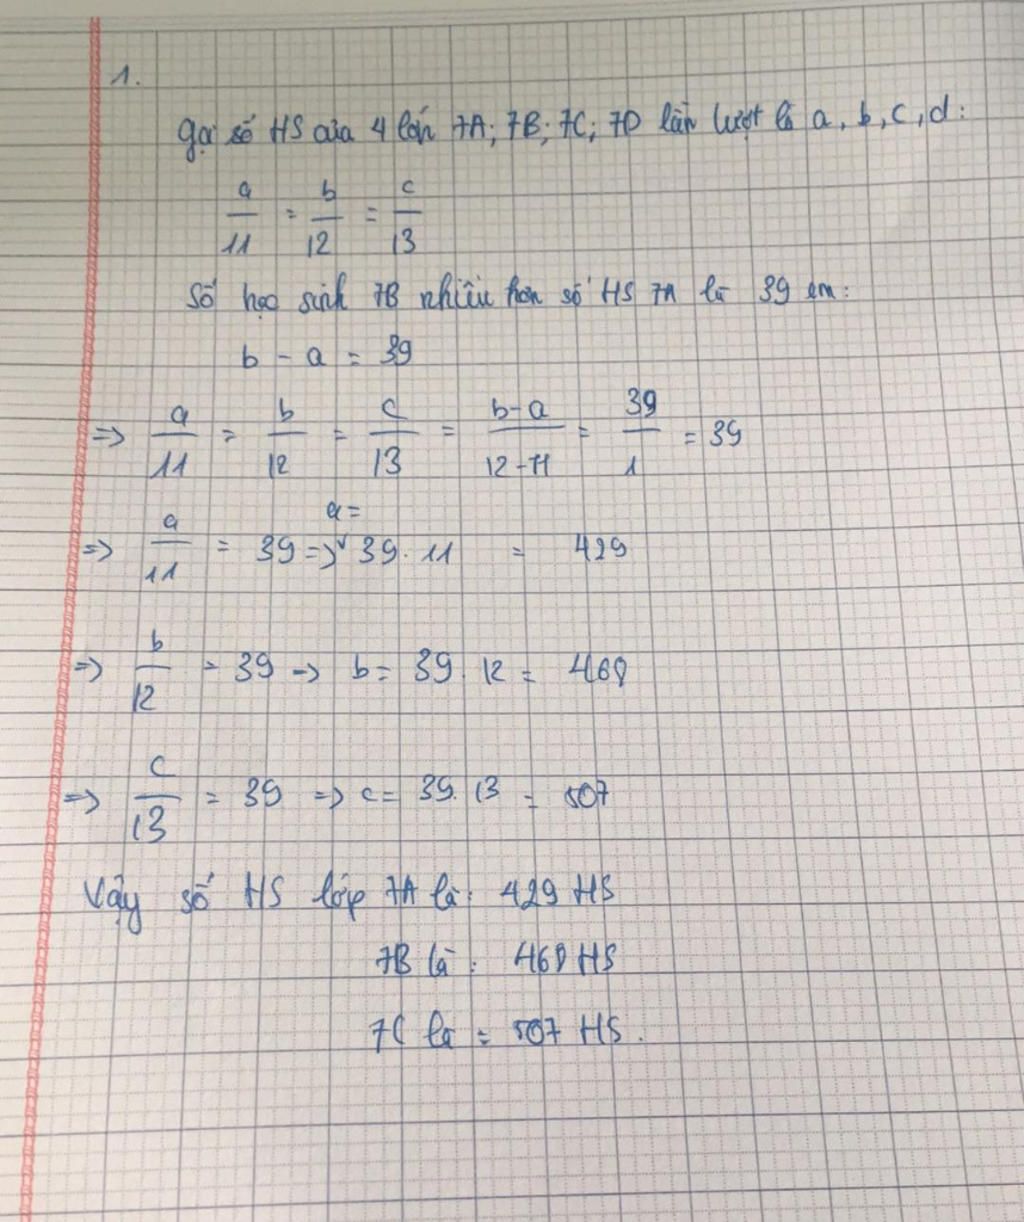 1.
Gọi số HS của 4 lớp 7A; 7B; 7C; 7D lần lượt là a, b, c, d:
a/11 = b/12 = c/13
Số học sinh 7B nhiều hơn số HS 7A là 39 em:
b - a = 39
=> a/11 = b/12 = c/13 = b-a/12-11 = 39/1 = 39
=> a/11 = 39 => a = 39. 11 = 429
=> b/12 = 39 -> b = 39. 12 = 468
=> c/13 = 39 => c = 39. 13 = 507
Vậy số HS lớp 7A là: 429 HS
7B là: 468 HS
7C là = 507 HS.